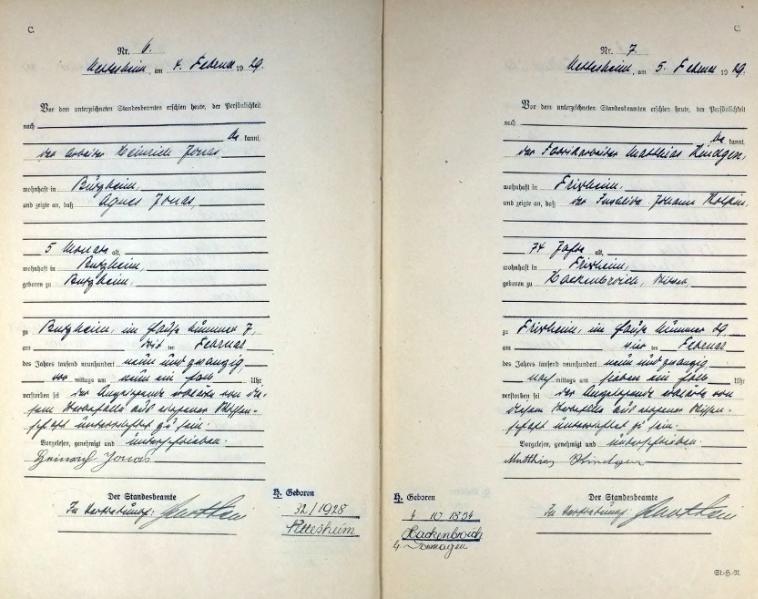 C.
Nr. 6.
Nettesheim, am 4. Februar 1929.
Vor dem unterzeichneten Standesbeamten erschien heute, der Persönlichkeit
nach
be kannt,
der Arbeiter Heinrich Jonas
wohnhaft in Butzheim,
und zeigte an, daß Agnes Jonas,
5 Monate alt,
wohnhaft in Butzheim,
geboren zu Butzheim,
zu Butzheim, im Hause Nummer 7,
am ten Februar
des Jahres tausend neunhundert neun und zwanzig
vor mittags um neun ein halb Uhr
verstorben sei. Der Anzeigende erklärte von die-
sem Sterbefalle aus eigener Wissen-
schaft unterrichtet zu sein.
Vorgelesen, genehmigt und unterschrieben.
Heinrich Jonas
Der Standesbeamte
In Vertretung:
H. Geboren
32/1928
Nettesheim
C.
Nr. 7.
Nettesheim, am 5. Februar 1929.
Vor dem unterzeichneten Standesbeamten erschien heute, der Persönlichkeit
nach
be kannt,
der Fabrikarbeiter Matthias
wohnhaft in Frixheim,
und zeigte an, daß der Invalide Johann
74 Jahre alt,
wohnhaft in Frixheim,
geboren zu Hackenbroich, Witwer
zu Frixheim, im Hause Nummer 29,
am vier ten Februar
des Jahres tausend neunhundert neun und zwanzig
nach mittags um sieben ein halb Uhr
verstorben sei. Der Anzeigende erklärte von
diesem Sterbefalle aus eigener Wissen-
schaft unterrichtet zu sein.
Vorgelesen, genehmigt und unterschrieben.
Matthias
Der Standesbeamte
In Vertretung:
H. Geboren
4 10.1854
Hackenbroich
Dormagen
St.-H.-N